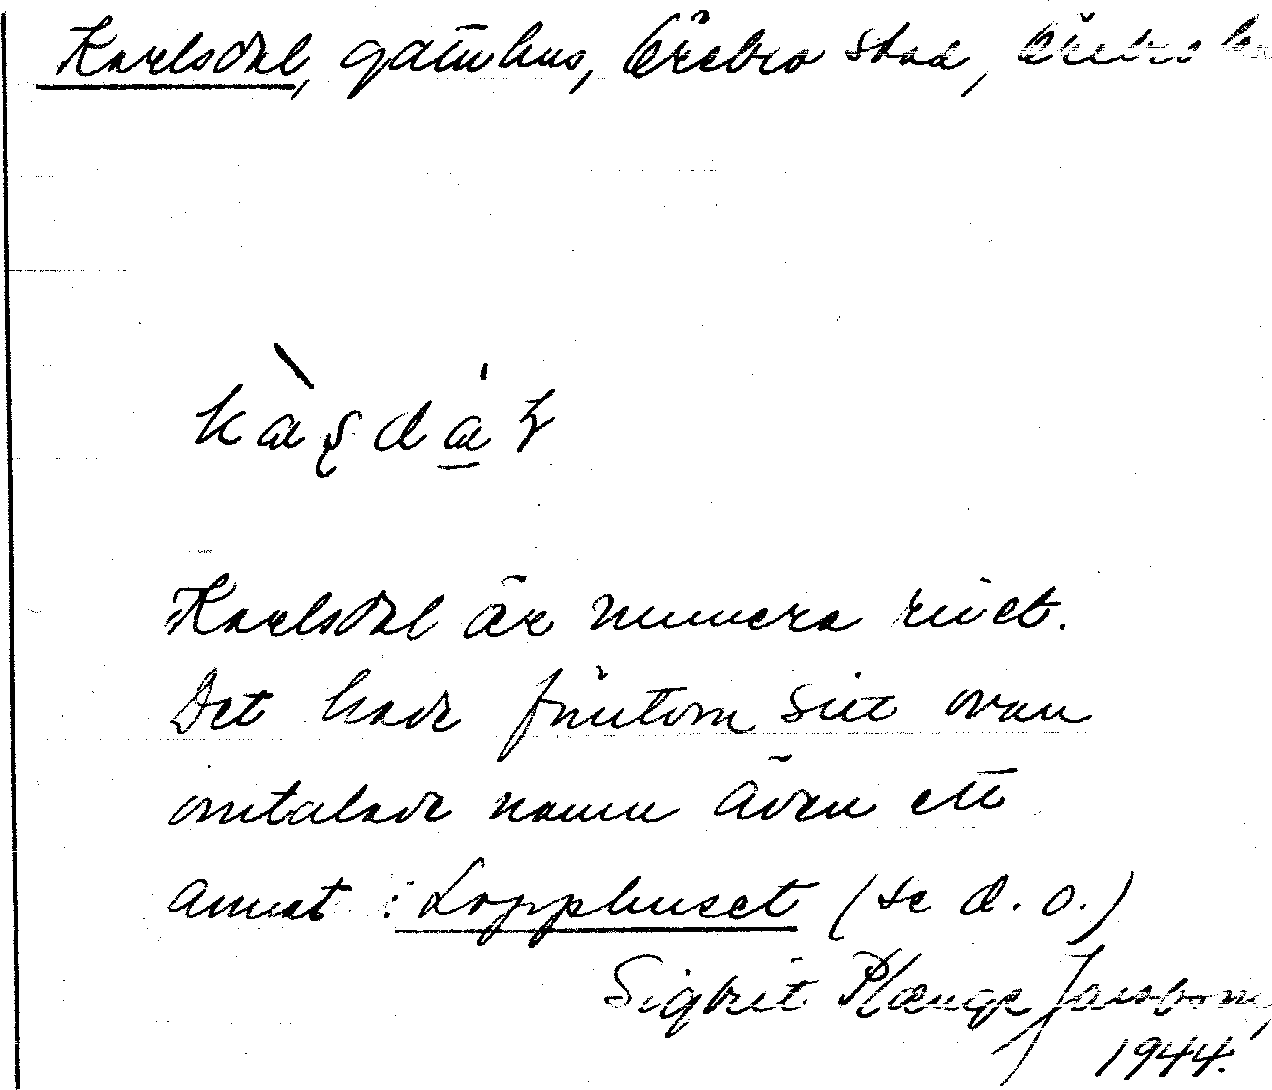 Karlsdal, gathus, Örebro stad, Örebro
Karlsdal är numera rivet.
Det hade förutom sitt ovan
omtalade namn även ett
annat : Lopphuset (se d. o.)
Sigbrit Plænge Jacobson,
1944.